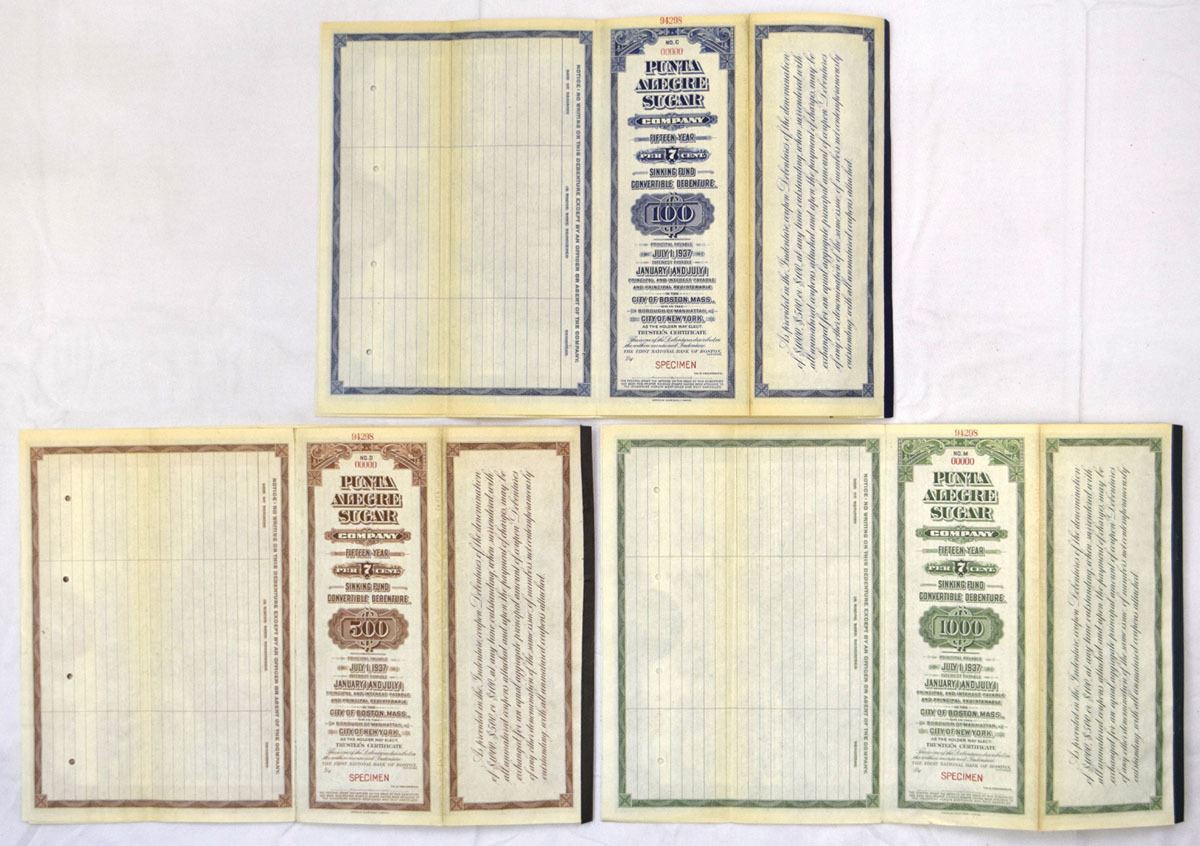 94298
NO. C
00000
PUNTA
ALEGRE
SUGAR
COMPANY
FIFTEEN YEAR
PER 7 CENT
SINKING FUND
CONVERTIBLE DEBENTURE
100
PRINCIPAL PAYABLE
JULY 1, 1937
INTEREST PAYABLE
JANUARY 1 AND JULY 1
PRINCIPAL AND INTEREST PAYABLE
AND PRINCIPAL REGISTERABLE
IN THE
CITY OF BOSTON, MASS.,
OR IN THE
BOROUGH OF MANHATTAN,
CITY OF NEW YORK,
AS THE HOLDER MAY ELECT.
TRUSTEE'S CERTIFICATE
This is one of the Debentures described in
the within mentioned Indenture.
THE FIRST NATIONAL BANK OF BOSTON,
By
SPECIMEN
NOTICE: NO WRITING ON THIS DEBENTURE EXCEPT BY AN OFFICER OR AGENT OF THE COMPANY.
DATE OF REGISTRY
IN WHOSE NAME REGISTERED
REGISTRAR
As provided in the Indenture, coupon Debentures of the denomination
of $1000, $500, or $100, at any time outstanding, when surrendered with
all unmatured coupons attached and upon the payment of charges, may be
exchanged for an equal aggregate principal amount of coupon Debentures
of any other denomination of the same issue, of numbers not contemporaneously
outstanding, with all unmatured coupons attached.
94298
NO. D
00000
PUNTA
ALEGRE
SUGAR
COMPANY
FIFTEEN YEAR
PER 7 CENT
SINKING FUND
CONVERTIBLE DEBENTURE
500
PRINCIPAL PAYABLE
JULY 1, 1937
INTEREST PAYABLE
JANUARY 1 AND JULY 1
PRINCIPAL AND INTEREST PAYABLE
AND PRINCIPAL REGISTERABLE
IN THE
CITY OF BOSTON, MASS.,
OR IN THE
BOROUGH OF MANHATTAN,
CITY OF NEW YORK,
AS THE HOLDER MAY ELECT.
TRUSTEE'S CERTIFICATE
This is one of the Debentures described in
the within mentioned Indenture.
THE FIRST NATIONAL BANK OF BOSTON,
By
SPECIMEN
NOTICE: NO WRITING ON THIS DEBENTURE EXCEPT BY AN OFFICER OR AGENT OF THE COMPANY.
DATE OF REGISTRY
IN WHOSE NAME REGISTERED
REGISTRAR
As provided in the Indenture, coupon Debentures of the denomination
of $1000, $500, or $100, at any time outstanding, when surrendered with
all unmatured coupons attached and upon the payment of charges, may be
exchanged for an equal aggregate principal amount of coupon Debentures
of any other denomination of the same issue, of numbers not contemporaneously
outstanding, with all unmatured coupons attached.
94298
NO. M
00000
PUNTA
ALEGRE
SUGAR
COMPANY
FIFTEEN YEAR
PER 7 CENT
SINKING FUND
CONVERTIBLE DEBENTURE
1000
PRINCIPAL PAYABLE
JULY 1, 1937
INTEREST PAYABLE
JANUARY 1 AND JULY 1
PRINCIPAL AND INTEREST PAYABLE
AND PRINCIPAL REGISTERABLE
IN THE
CITY OF BOSTON, MASS.,
OR IN THE
BOROUGH OF MANHATTAN,
CITY OF NEW YORK,
AS THE HOLDER MAY ELECT.
TRUSTEE'S CERTIFICATE
This is one of the Debentures described in
the within mentioned Indenture.
THE FIRST NATIONAL BANK OF BOSTON,
By
SPECIMEN
NOTICE: NO WRITING ON THIS DEBENTURE EXCEPT BY AN OFFICER OR AGENT OF THE COMPANY.
DATE OF REGISTRY
IN WHOSE NAME REGISTERED
REGISTRAR
As provided in the Indenture, coupon Debentures of the denomination
of $1000, $500, or $100, at any time outstanding, when surrendered with
all unmatured coupons attached and upon the payment of charges, may be
exchanged for an equal aggregate principal amount of coupon Debentures
of any other denomination of the same issue, of numbers not contemporaneously
outstanding, with all unmatured coupons attached.